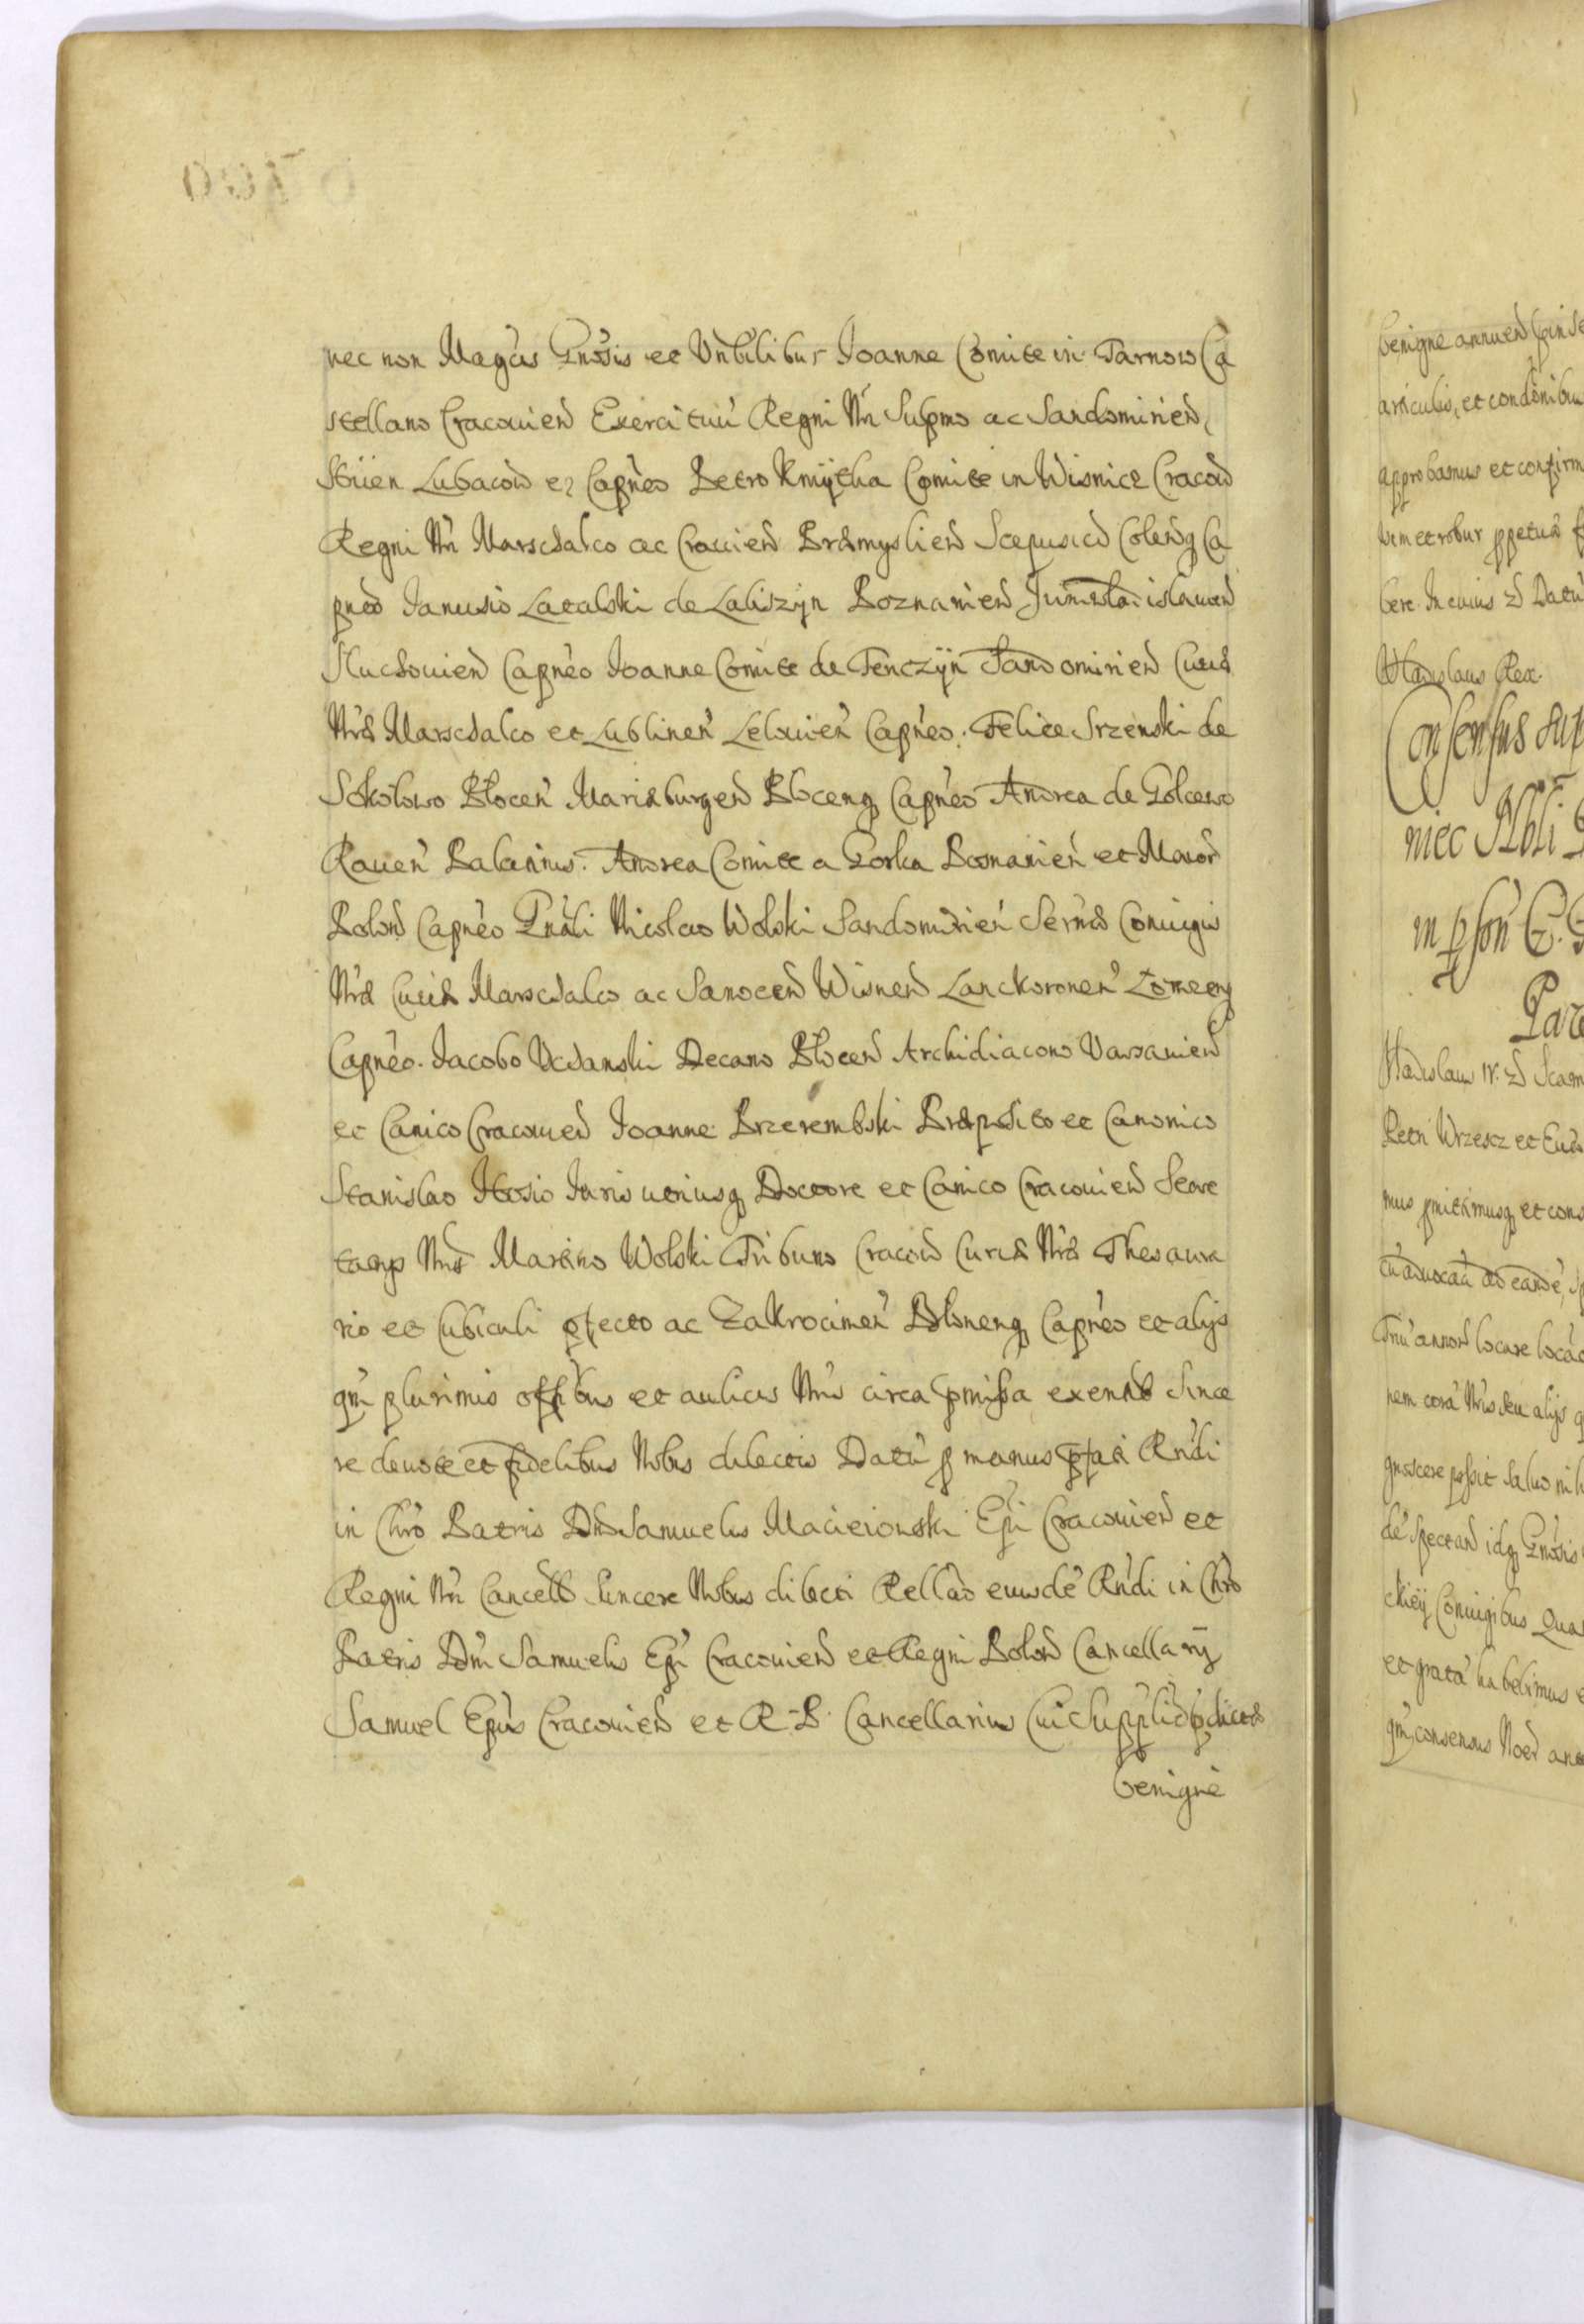 nec non Magcis Gnosis et Vnbilibus Joanne Comite in Tarnow Ca
stellano Cracouien Exercituu Regni Nri Supmo ac Sandomirien
Striien Lubacow Capneo Petro Kmijtha Comite in Wisnice Cracow
Regni Nri Marschalco ac Cracuien Præmyslien Scepusien Colenq Ca
pneo Janusio Latalski de Labiszijn Poznanien Juniwladislauien
Sluchouien Capneo Joanne Comite de Tenczijn Sandomirien Curiæ
Nræ Marschalco et Lublinen Lelouien Capneo. Felice Srzenski de
Sokolowo Plocen Mariæburgen Plocenq Capneo Andrea de Golcewo
Rauen Palatinis. Andrea Comite a Gorka Posnanien et Maior
Polon Capneo Gnali Nicolao Wolski Sandomirien Sernæ Coniugis
Nræ Curiæ Marschalco ac Sanocen Wisnen Lanckoronen Łomzenq
Capneo. Jacobo Vchanski Decano Plocen Archidiacono Varsauien
et Canico Cracouien Joanne Przerembski Præposito et Canonico
Stanislao Hosio Juris utriusq Doctore et Canico Cracouien Secre
tarijs Nris Martino Wolski Tribuno Cracow Curiæ Nræ Thesaura
rio et Cubiculi pfecto ac Zakrocimen Blonenq Capneo et alijs
qm plurimis offibus et aulicis Nris circa pmissa exentib Since
re deuote et fidelibus Nobis dilectis Datu p manus pfati Rndi
in Chro Patris Dni Samuelis Macieiowski Epi Cracouien et
Regni Nri Cancell Sincere Nobis dilecti Rellao eiusde Rndi in Chro
Patris Dni Samuelis Epi Cracouien et Regni Polon Cancellarij
Samuel Epus Cracouien et R. P. Cancellarius Cui Supplicõ pdictæ
benigne
benigne annuen
articulis, et condonibus
approbamus et confirm
uim et robur ppetuæ
bere. In cuius Datu
Wladislaus Rex.
Consensus sup
niec Nbli
in pson G. G
Wladislaus IV.
Petri Wrzescz et
mus pmittimusq et cons
Triu annor locare
nem cora Nris seu alijs
gnoscere possit saluo
de spectan idq Gnosis
Coniugibus Qua
et grata habebimus
qm consensus